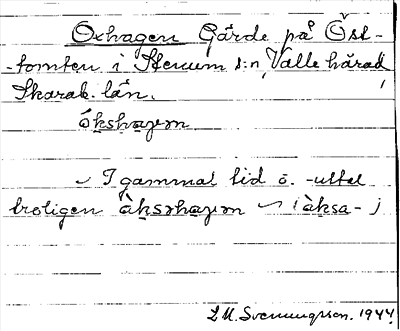 Oxhagen Gärde på Öst-
-tomten i Stenum s:n, Valle härad
Skarab. län.
ókshaɡem
I gammal tid o. -uttal
troligen àksrhaɡem ~ (àksa- )
L.M. Svenungsson. 1944.